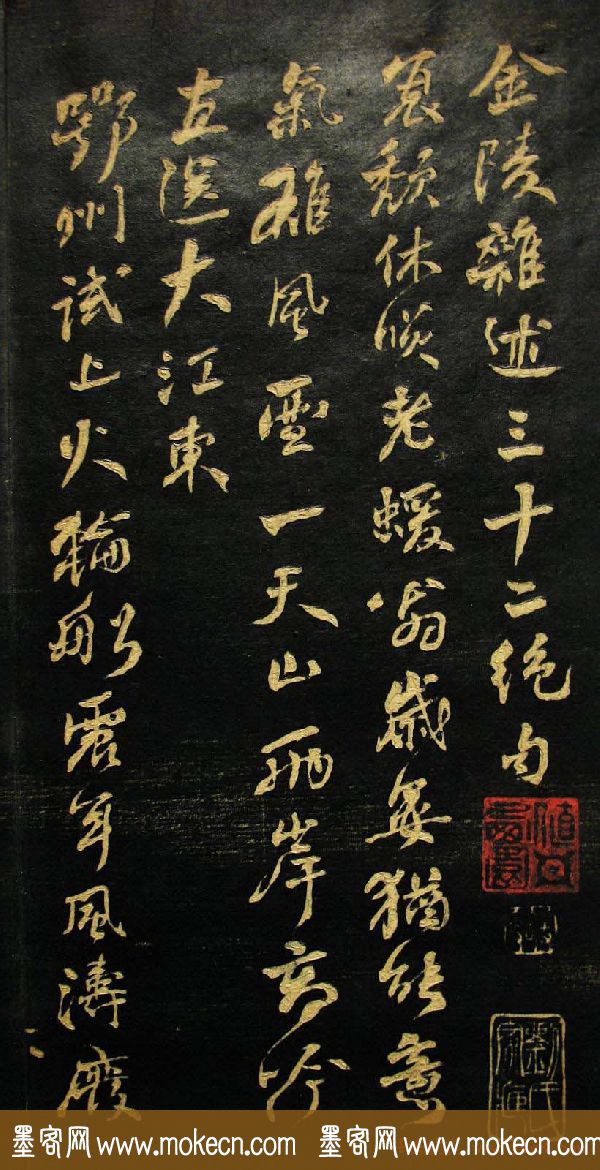 金陵雜述三十二絕句
衰頹休笑老蝯翁歲莫猶能意
氣雄風雪一天山兩岸高吟
直大江東
鄂州試上火輪船年風濤
墨客网www.mokecn.com 墨客网www.mokecn.com